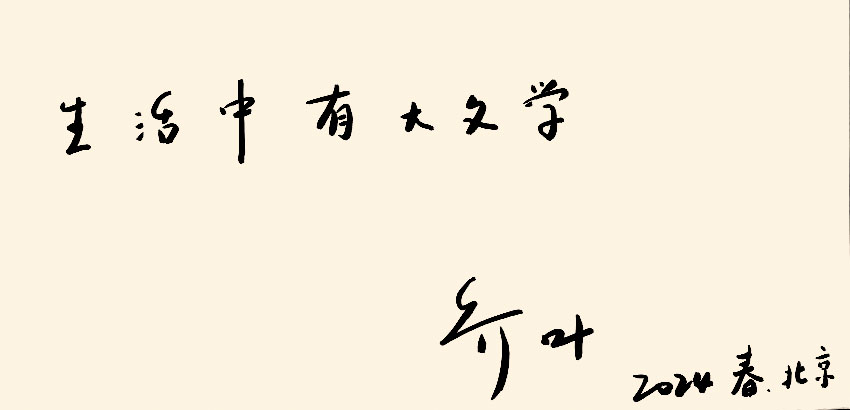 生活中有大文学
乔叶
2024春.北京